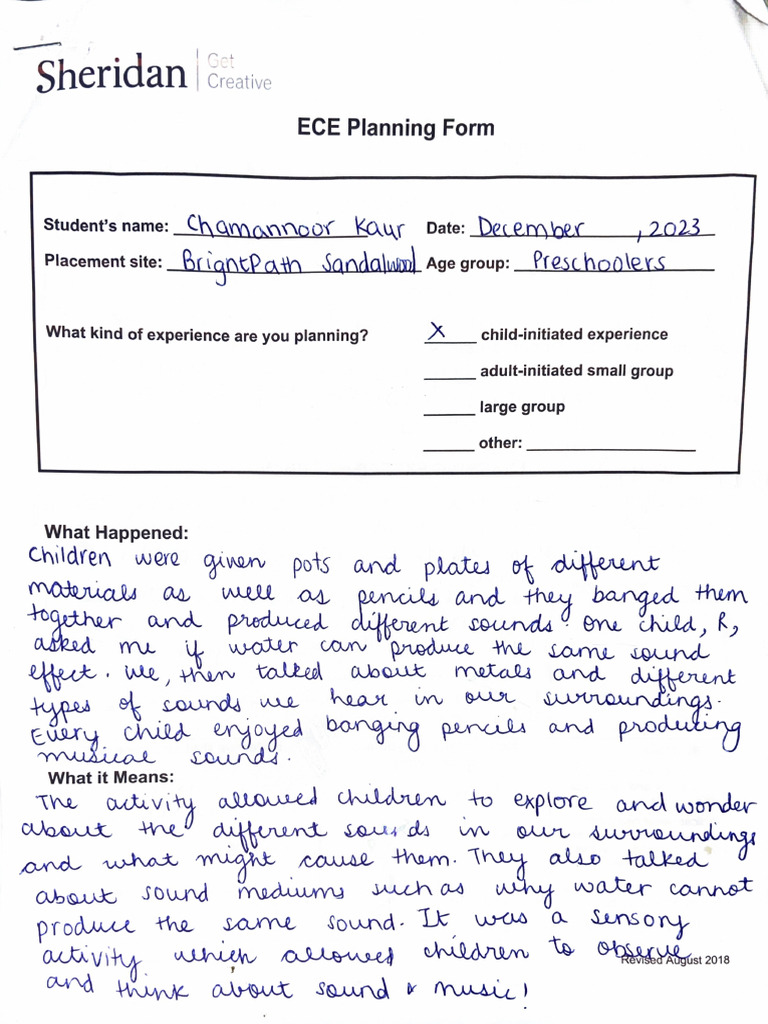 Sheridan | Get Creative
ECE Planning Form
Student's name: Chamannoor Kaur Date: December , 2023
Placement site: BrightPath Sandalwood Age group: Preschoolers
What kind of experience are you planning? X child-initiated experience
adult-initiated small group
large group
other:
What Happened:
Children were given pots and plates of different
materials as well as pencils and they banged them
together and produced different sounds. One child, R,
asked me if water can produce the same sound
effect. We, then talked about metals and different
types of sounds we hear in our surroundings.
Every child enjoyed banging pencils and producing
musical sounds.
What it Means:
The activity allowed children to explore and wonder
about the different sounds in our surroundings
and what might cause them. They also talked
about sound mediums such as why water cannot
produce the same sound. It was a sensory
activity which allowed children to observe
Revised August 2018
and think about sound & music!